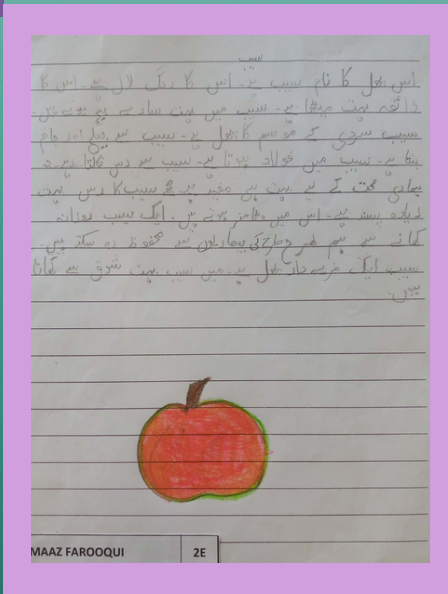 سیب
اس پھل کا نام سیب ہے۔ اس کا رنگ لال ہے۔ اس کا
ذائقہ بہت میٹھا ہے۔ سیب میں بہت سارے بیج ہوتے ہیں۔
سیب سردی کے موسم کا پھل ہے۔ سیب سے جیلی اور جام
بنتا ہے۔ سیب میں فولاد ہوتا ہے۔ سیب سے رس نکلتا ہے۔
ہماری صحت کے لیے بہت ہی مفید ہے۔ سیب کا رس بہت
زیادہ پسند ہے۔ اس میں وٹامنز ہوتے ہیں۔ ایک سیب روزانہ
کھانے سے ہم طرح طرح کی بیماریوں سے محفوظ رہ سکتے ہیں۔
سیب ایک مزے دار پھل ہے۔ میں سیب بہت شوق سے کھاتا
ہوں۔
MAAZ FAROOQUI 2E